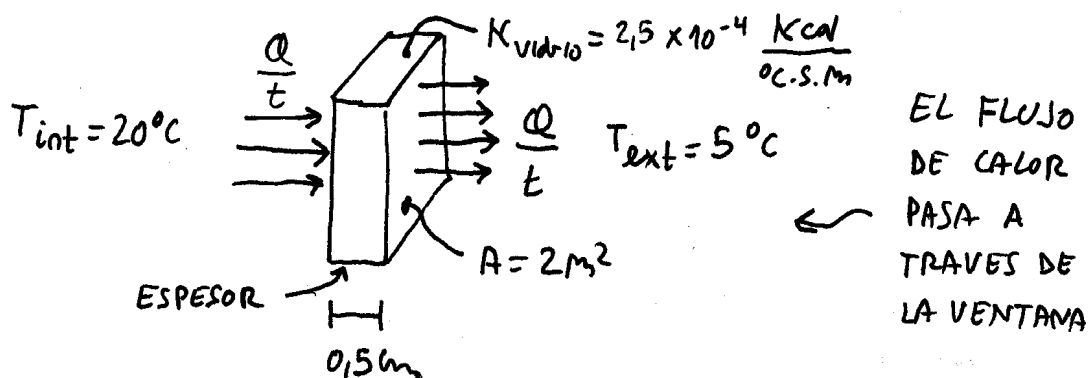 K vidrio = 2,5 × 10-4 Kcal
°C.S.m
Q
t
T int = 20°C
Q
t
T ext = 5 °C
A = 2m2
ESPESOR
0,5cm
EL FLUJO
DE CALOR
PASA A
TRAVES DE
LA VENTANA